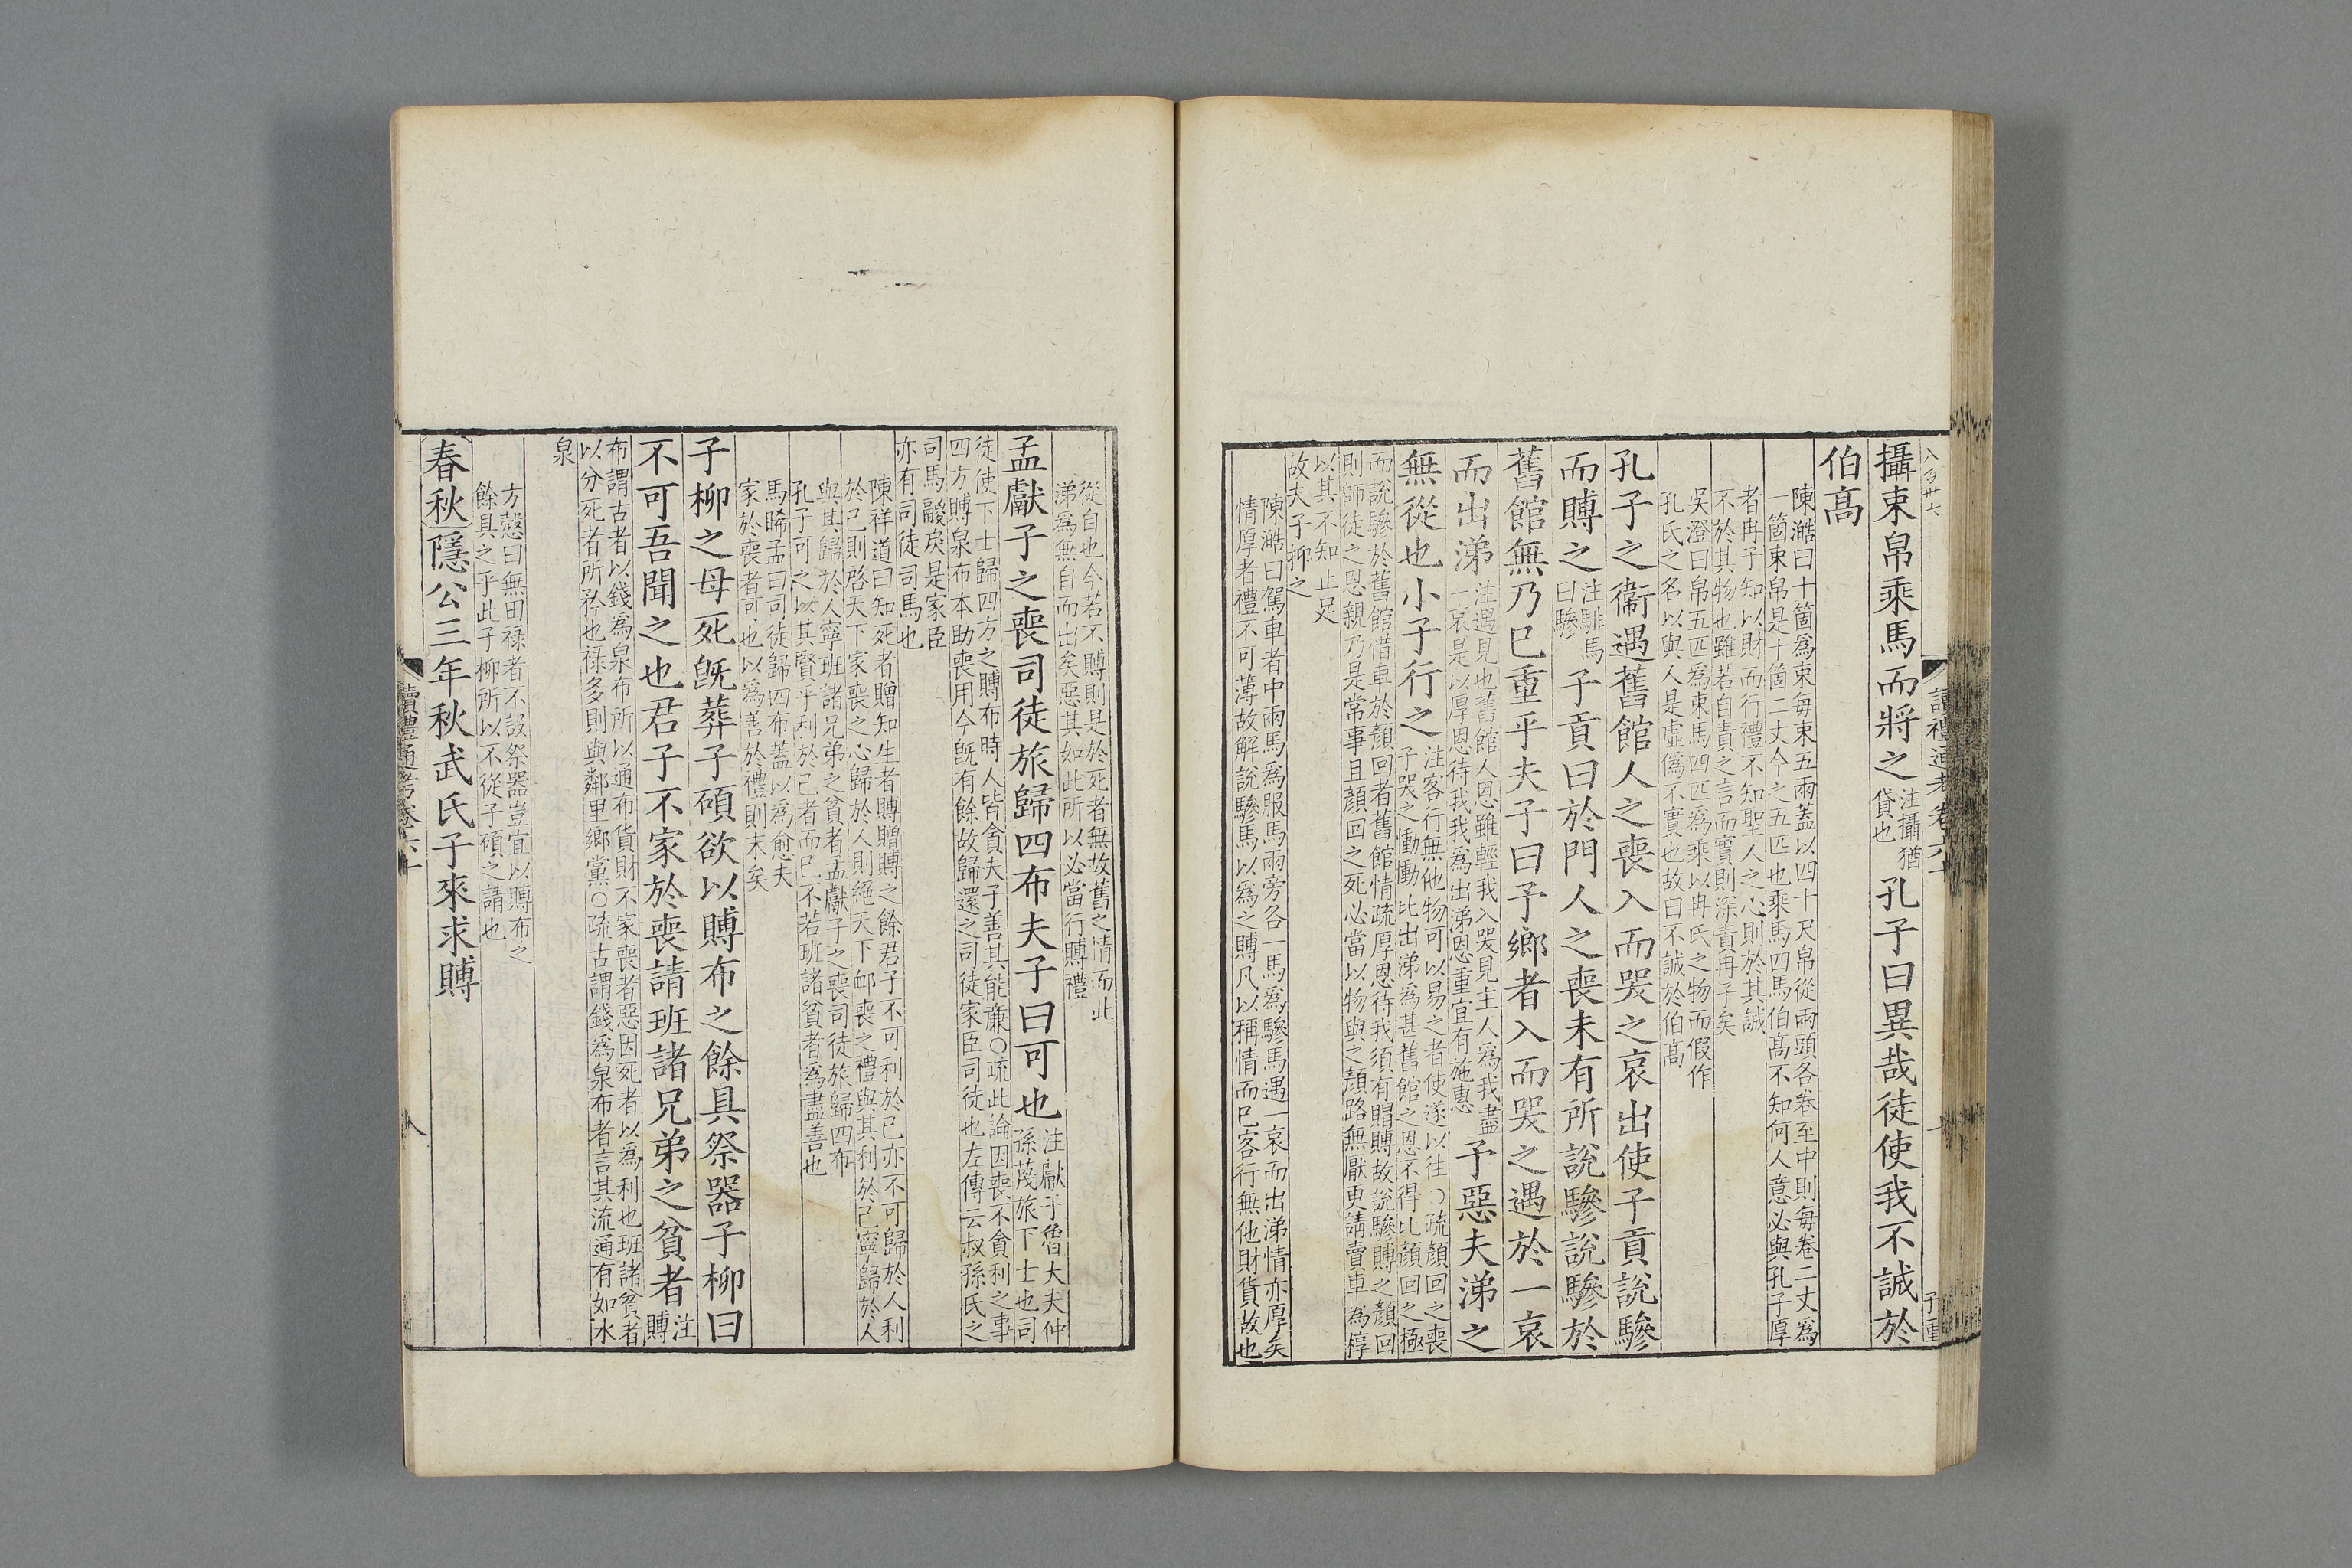 攝束帛乘馬而將之注攝猶貸也孔子曰異哉徒使我不誠於
伯髙
陳澔曰十箇爲束每束五兩蓋以四十尺帛從兩頭各卷至中則每卷二丈爲
一箇束帛是十箇二丈今之五匹也乘馬四馬伯髙不知何人意必與孔子厚
者冉子知以財而行禮不知聖人之心則於其誠
不於其物也雖若自責之言而實則深責冉子矣
吳澄曰帛五匹爲束馬四匹爲乘以冉氏之物而假作
孔氏之名以與人是虛僞不實也故曰不誠於伯髙
孔子之衞遇舊館人之喪入而哭之哀出使子貢說驂
而賻之注騑馬曰驂子貢曰於門人之喪未有所說驂說驂於
舊館無乃已重乎夫子曰予鄉者入而哭之遇於一哀
而出涕注遇見也舊館人恩雖輕我入哭見主人爲我盡一哀是以厚恩待我我爲出涕恩重宜有施惠予惡夫涕之
無從也小子行之注客行無他物可以易之者使遂以往○疏顏回之喪子哭之慟慟比出涕爲甚舊館之恩不得比顏回之極
而說驂於舊館惜車於顏回者舊館情疏厚恩待我須有賵賻故說驂賻之顏回
則師徒之恩親乃是常事且顏回之死必當以物與之顏路無厭更請賣車爲椁
以其不知止足
故夫子抑之
陳澔曰駕車者中兩馬爲服馬兩旁各一馬爲驂馬遇一哀而出涕情亦厚矣
情厚者禮不可薄故解說驂馬以爲之賻凡以稱情而已客行無他財貨故也
讀禮通考卷六十
從自也今若不賻則是於死者無故舊之情而此
涕爲無自而出矣惡其如此所以必當行賻禮
孟獻子之喪司徒旅歸四布夫子曰可也注獻子魯大夫仲孫蔑旅下士也司
徒使下士歸四方之賻布時人皆貪夫子善其能亷○疏此論因喪不貪利之事
四方賻泉布本助喪用今旣有餘故歸還之司徒家臣司徒也左傳云叔孫氏之
司馬鬷戾是家臣
亦有司徒司馬也
陳祥道曰知死者贈知生者賻贈賻之餘君子不可利於己亦不可歸於人利
於己則啓天下家喪之心歸於人則絕天下䘏喪之禮與其利於己寧歸於人
與其歸於人寧班諸兄弟之貧者孟獻子之喪司徒旅歸四布
孔子可之以其賢乎利於己者而已不若班諸貧者爲盡善也
馬睎孟曰司徒歸四布蓋以爲愈夫
家於喪者可也以爲善於禮則末矣
子柳之母死旣葬子碩欲以賻布之餘具祭器子柳曰
不可吾聞之也君子不家於喪請班諸兄弟之貧者注賻
布謂古者以錢爲泉布所以通布貨財不家喪者惡因死者以爲利也班諸貧者
以分死者所矜也祿多則與鄰里鄉黨○疏古謂錢爲泉布者言其流通有如水
泉
方愨曰無田祿者不設祭器豈宜以賻布之
餘具之乎此子柳所以不從子碩之請也
春秋隱公三年秋武氏子來求賻
讀禮通考卷六十
八